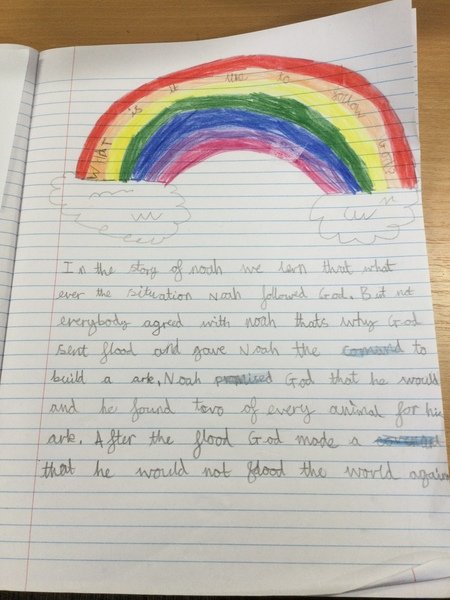 What is it like to follow God?
In the story of noah we lern that what
ever the situation Noah followed God. But not
everybody agreed with noah thats why God
sent flood and gave Noah the comand to
build a ark. Noah promised God that he would
and he found two of every animal for his
ark. After the flood God made a covenant
that he would not flood the world again